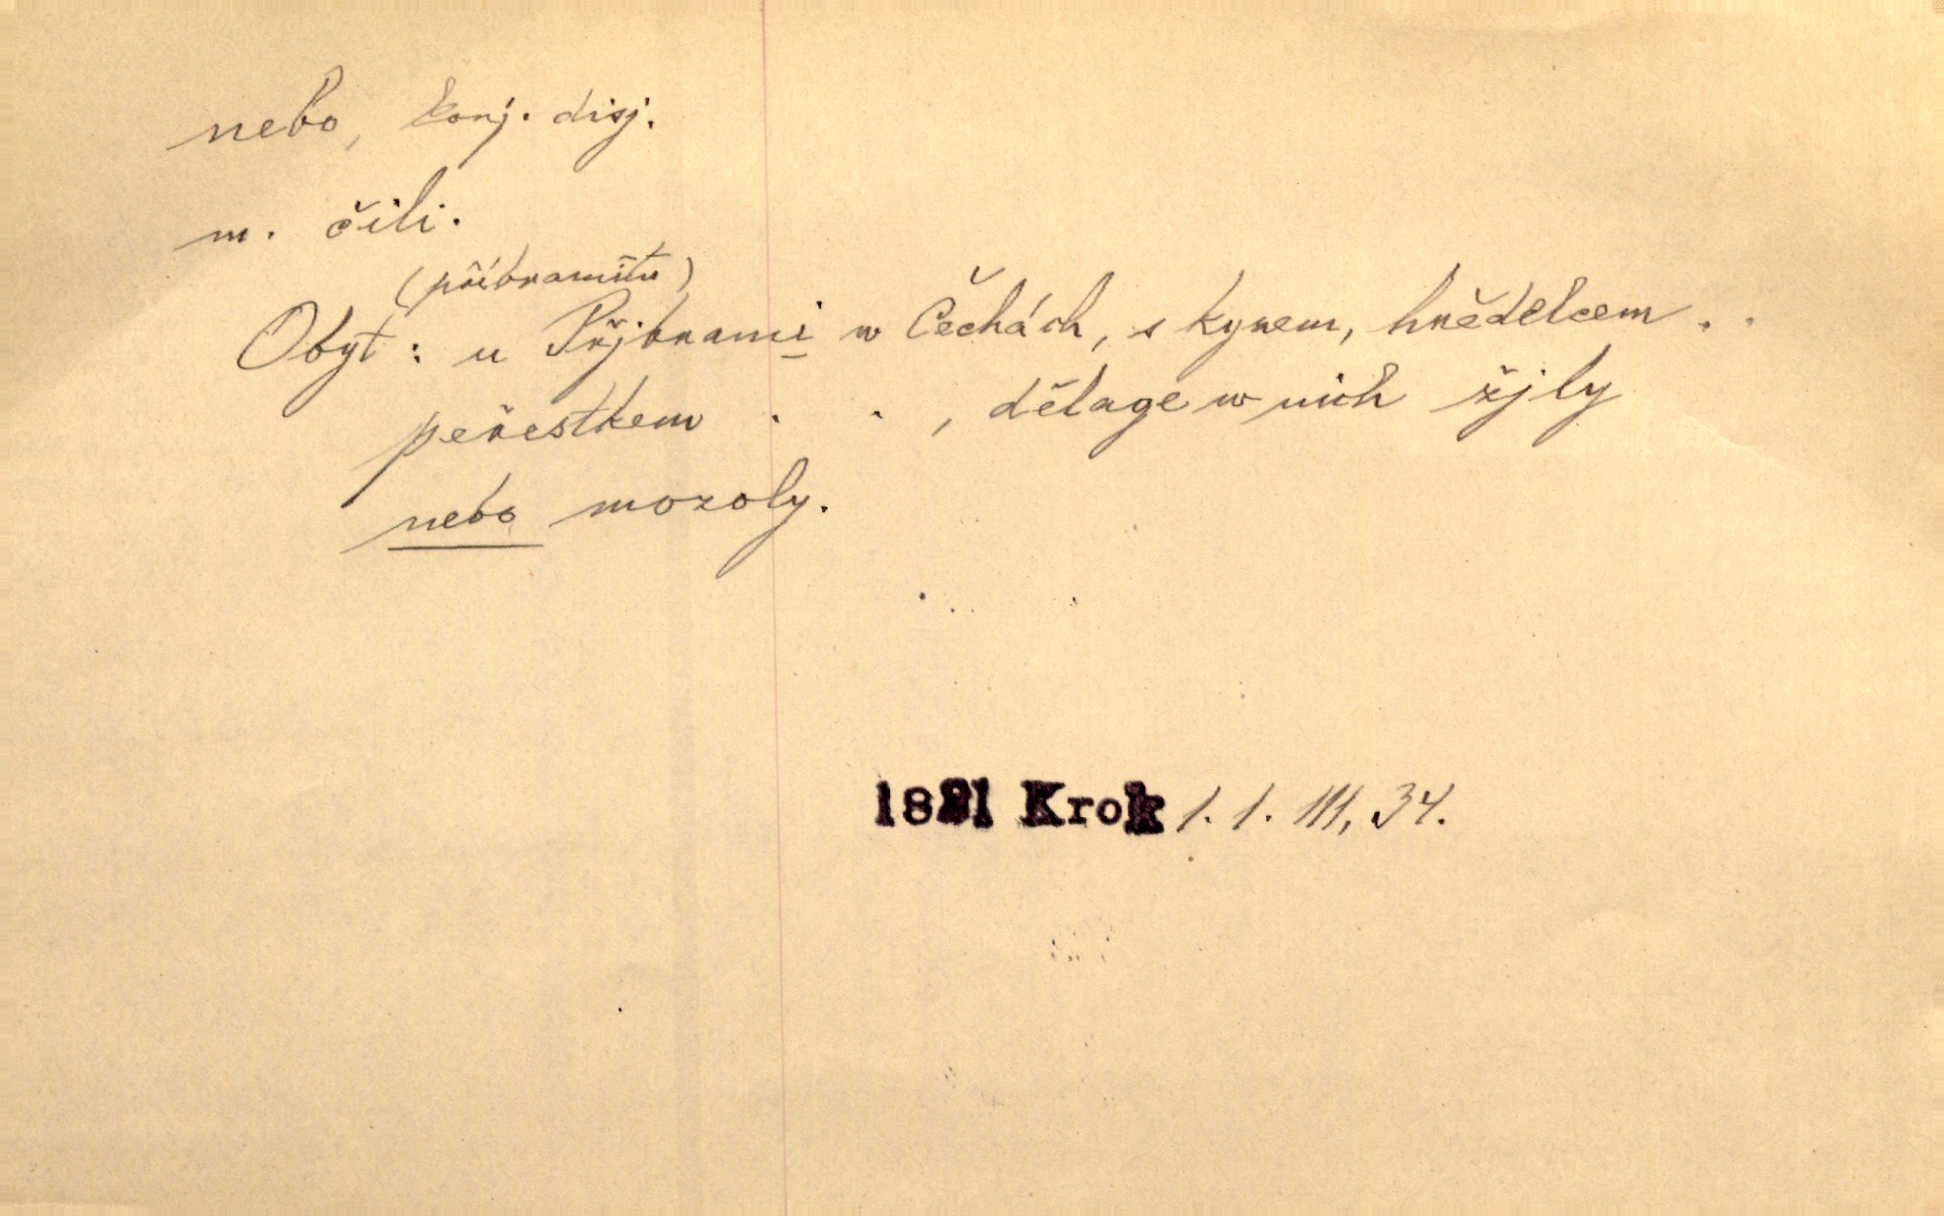 nebo, konj. disj.
m. čili.
(příbramitu)
Obyt: u Přjbrami w Čechách, s kyzem, hnědelcem . .
peřestkem . . , dělage w nich žjly
nebo mozoly.
1821 Krok 1. 1. III, 34.